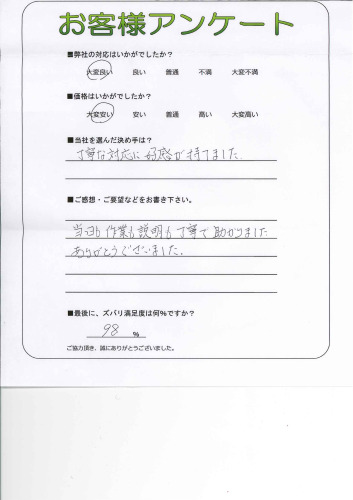 お客様アンケート
■弊社の対応はいかがでしたか?
大変良い 良い 普通 不満 大変不満
■価格はいかがでしたか?
大変安い 安い 普通 高い 大変高い
■当社を選んだ決め手は?
丁寧な対応に好感が持てました.
■ご感想・ご要望などをお書き下さい。
当日も作業も説明も丁寧で助かりました
ありがとうございました.
■最後に、ズバリ満足度は何%ですか?
98 %
ご協力頂き、誠にありがとうございました。